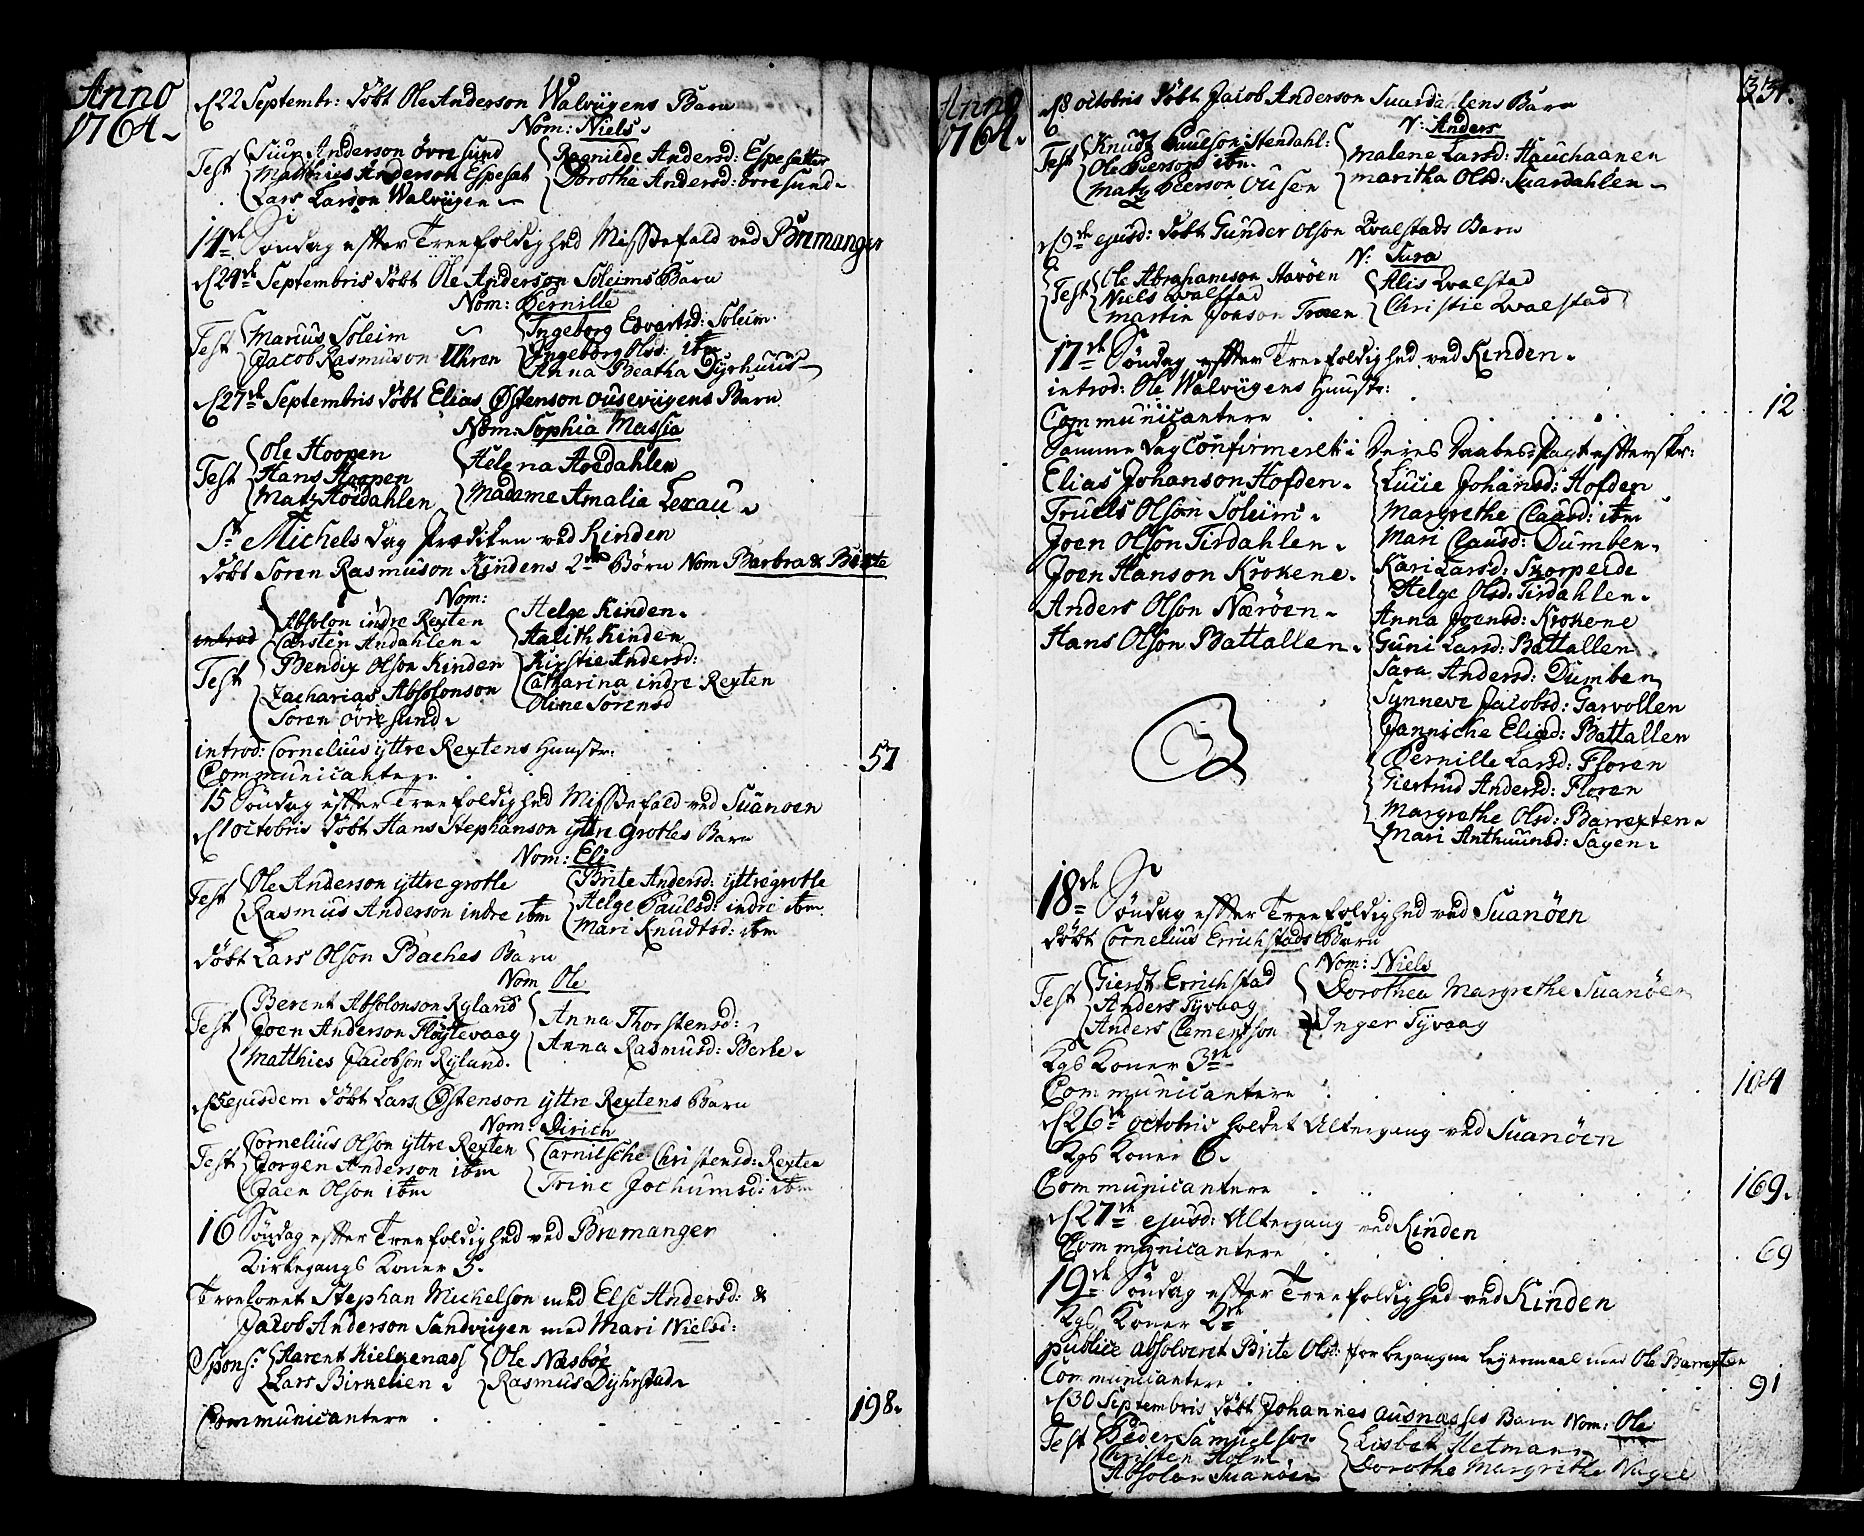 Anno
1764
d 22 Septembr: döbt Ole Anderson Walvügens Barn
Nom: Niels
Test Siur Anderson övre sund
Matthies Anderson Espeset
Lars Larson Walvügen
Ragnilde Andersd: Espesetter
Dorothe Andersd: övre sund
14de Söndag effter Treefoldighed Missefald ved Bremanger
d 24de Septembris döbt Ole Anderson Soleims Barn
Nom: Pernille
Test Marius Soleim
Jacob Rasmuson Uhren
Ingeborg Edvartsd: Soleim
Ingeborg Olsd: itm
Anna Beatha Dyrhuus
d 27de Septembris döbt Elias Østenson ousevügens Barn
Nom: Sophia Massia
Test Ole Hoopen
Hans Hoopen
Matz Höedahlen
Helena Höedahlen
Madame Amalia Lexau
St Michels dag Prædiken ved Kinden
döbt Soren Rasmuson Kindens 2de Börn Nom Barbra & Birte
Nom:
introd
Test Absolon indre Rexten
Carsten Andahlen
Bendix Olson Kinden
Zacharias Absolonson
Soren övresund
Helge Kinden
Aalith Kinden
Kirstie Andersd:
Catharina indre Rexten
Oline Sorensd
introd: Cornelius yttre Rextens Huustr:
Communicantere 57
15 Söndag effter Treefoldighed Missefald ved Suanoen
d 1 octobris döbt Hans Stephanson yttre grotles Barn
Nom: Eli
Test Ole Anderson yttre grotle
Rasmus Anderson indre itm
Brite Andersd: yttregrotle
Helge Paulsd: indre itm
Mari Knudtsd: itm
döbt Lars Olson Baches Barn
Nom Ole
Test Berent Absolonson Ryland
Joen Anderson Flöytevaag
Matthies Jacobson Ryland
Anna Thorstensd:
Anna Rasmusd: Berle
d 5 ejusdem döbt Lars Østenson yttre Rextens Barn
Nom: Dirich
Test Cornelius Olson yttre Rexten
Jorgen Anderson itm
Joen Olson itm
Carnilsche Christensd: Rexten
Trine Jochumsd: itm
16 Söndag effter Treefoldighed ved Bremanger
Kirkegangs Koner 5.
Troelovet Stephan Michelson med Else Andersd: &
Jacob Anderson Sandvügen med Mari Nielsd:
Spons: Aarent Kielkenæss
Lars Birkelien
Ole Næsböe
Rasmus Dyhrstad
Communicantere 198.
Anno
1764
331.
d 8 octobris döbt Jacob Anderson Suardahlens Barn
N: Anders
Test Knudt Paulson Stendahl:
Ole Peerson itm
Matz Peerson Ousen
Malene Larsd: Hauchaanen
Maritha Olsd: Suardahlen
d 9de ejusd: döbt Gunder Olson Qvalstads Barn
N: Sura
Test Ole Abrahamson Stavöen
Niels Qvalstad
Martin Jonson Troen
Alis Qvalstad
Christie Qvalstad
17de Söndag effter Treefoldighed ved Kinden
introd: Ole Walvügens Huustr:
Communicantere 12
Samme dag Confirmeret i deres Daabes Pagt effterskr:
Elias Johanson Hofden
Truels Olson Soleim
Joen Olson Tirdahlen
Joen Hanson Krokene
Anders Olson Næröen
Hans Olson Battallen
Lucie Johansd: Hofden
Margrethe Claasd: itm
Mari Clausd: Dumben
Kari Larsd: Skorpeide
Helge Olsd: Tirdahlen
Anna Joensd: Krokene
Guni Larsd: Battallen
Sara Andersd: Dumben
Synneve Jacobsd: Garvollen
Janniche Eliæd: Battallen
Pernille Larsd: Floren
Giertrud Andersd: Floren
Margrethe Olsd: Barrexten
Mari Anthuunsd: Sagen
18de Söndag effter Treefoldighed ved Suanöen
döbt Cornelius Errichstads Barn
Nom: Niels
Test Gierdt Errichstad
Anders Tyvaag
Anders Clementson
Dorothea Margrethe Suanöen
Inger Tyvaag
Kgs Koner 3de
Communicantere 104
d 26de octobris holdet Altergang ved Suanöen
Kgs Koner 6.
Communicantere 169.
d 27de ejusd: Altergang ved Kinden
Communicantere 69
19de Söndag effter Treefoldighed ved Kinden
Kgs Koner 2de
publice absolveret Brite Olsd: for begangen Leyermaal med Ole Barrexten
Communicantere 91
d 30 Septembris döbt Johannes Ausnæsses Barn Nom: Ole
Test Peder Samuelson
Christen Holm
Absolon Suanöen
Lisbet Hetman
Dorothe Margrethe Nagel